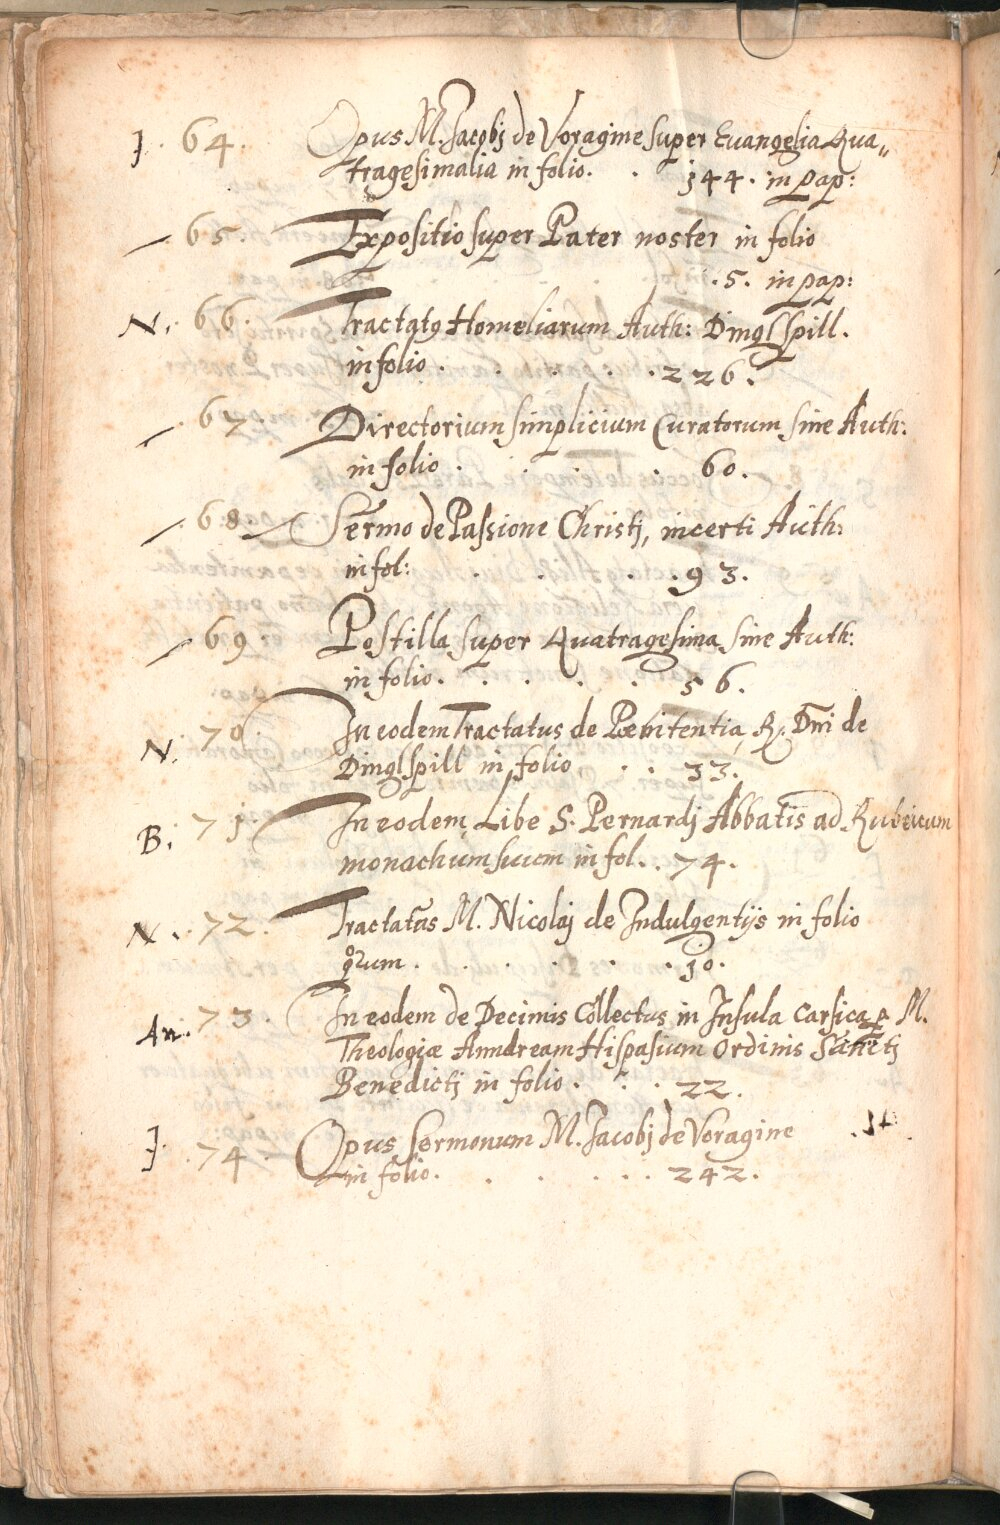 J. 64. Opus M. Jacobj de Voragine super Euangelia Qua„
tragesimalia in folio. . 144. in pap:
— 65. Expositio super Pater noster in folio
. 5. in pap:
N. 66. Tractatꝰ Homeliarum Auth: Dinglspill.
in folio . . . . . 226.
— 67. Directorium simplicium Curatorum sine Auth:
in folio . . . . 60.
— 68. Sermo de Passione Christj, incerti Auth:
in fol: . . . . 93.
— 69. Postilla super Quatragesima sine Auth:
in folio. . . . . 56.
N. 70. In eodem Tractatus de Poenitentia, R. Dni de
Dinglspill in folio . . 33.
B. 71. In eodem Libe S. Pernardj Abbatis ad Rubeicum
monachum suum in fol. . 74.
N. 72. Tractatus M. Nicolaj de Indulgentijs in folio
qrum . . . . . . 10.
An. 73. In eodem de Decimis Collectus in Insula Carsica p M.
Theologiæ Anndream Hispasium Ordinis Sanctj
Benedictj in folio . . . 22.
J. 74. Opus Sermonum M. Jacobj de Voragine
in folio. . . . . . 242.